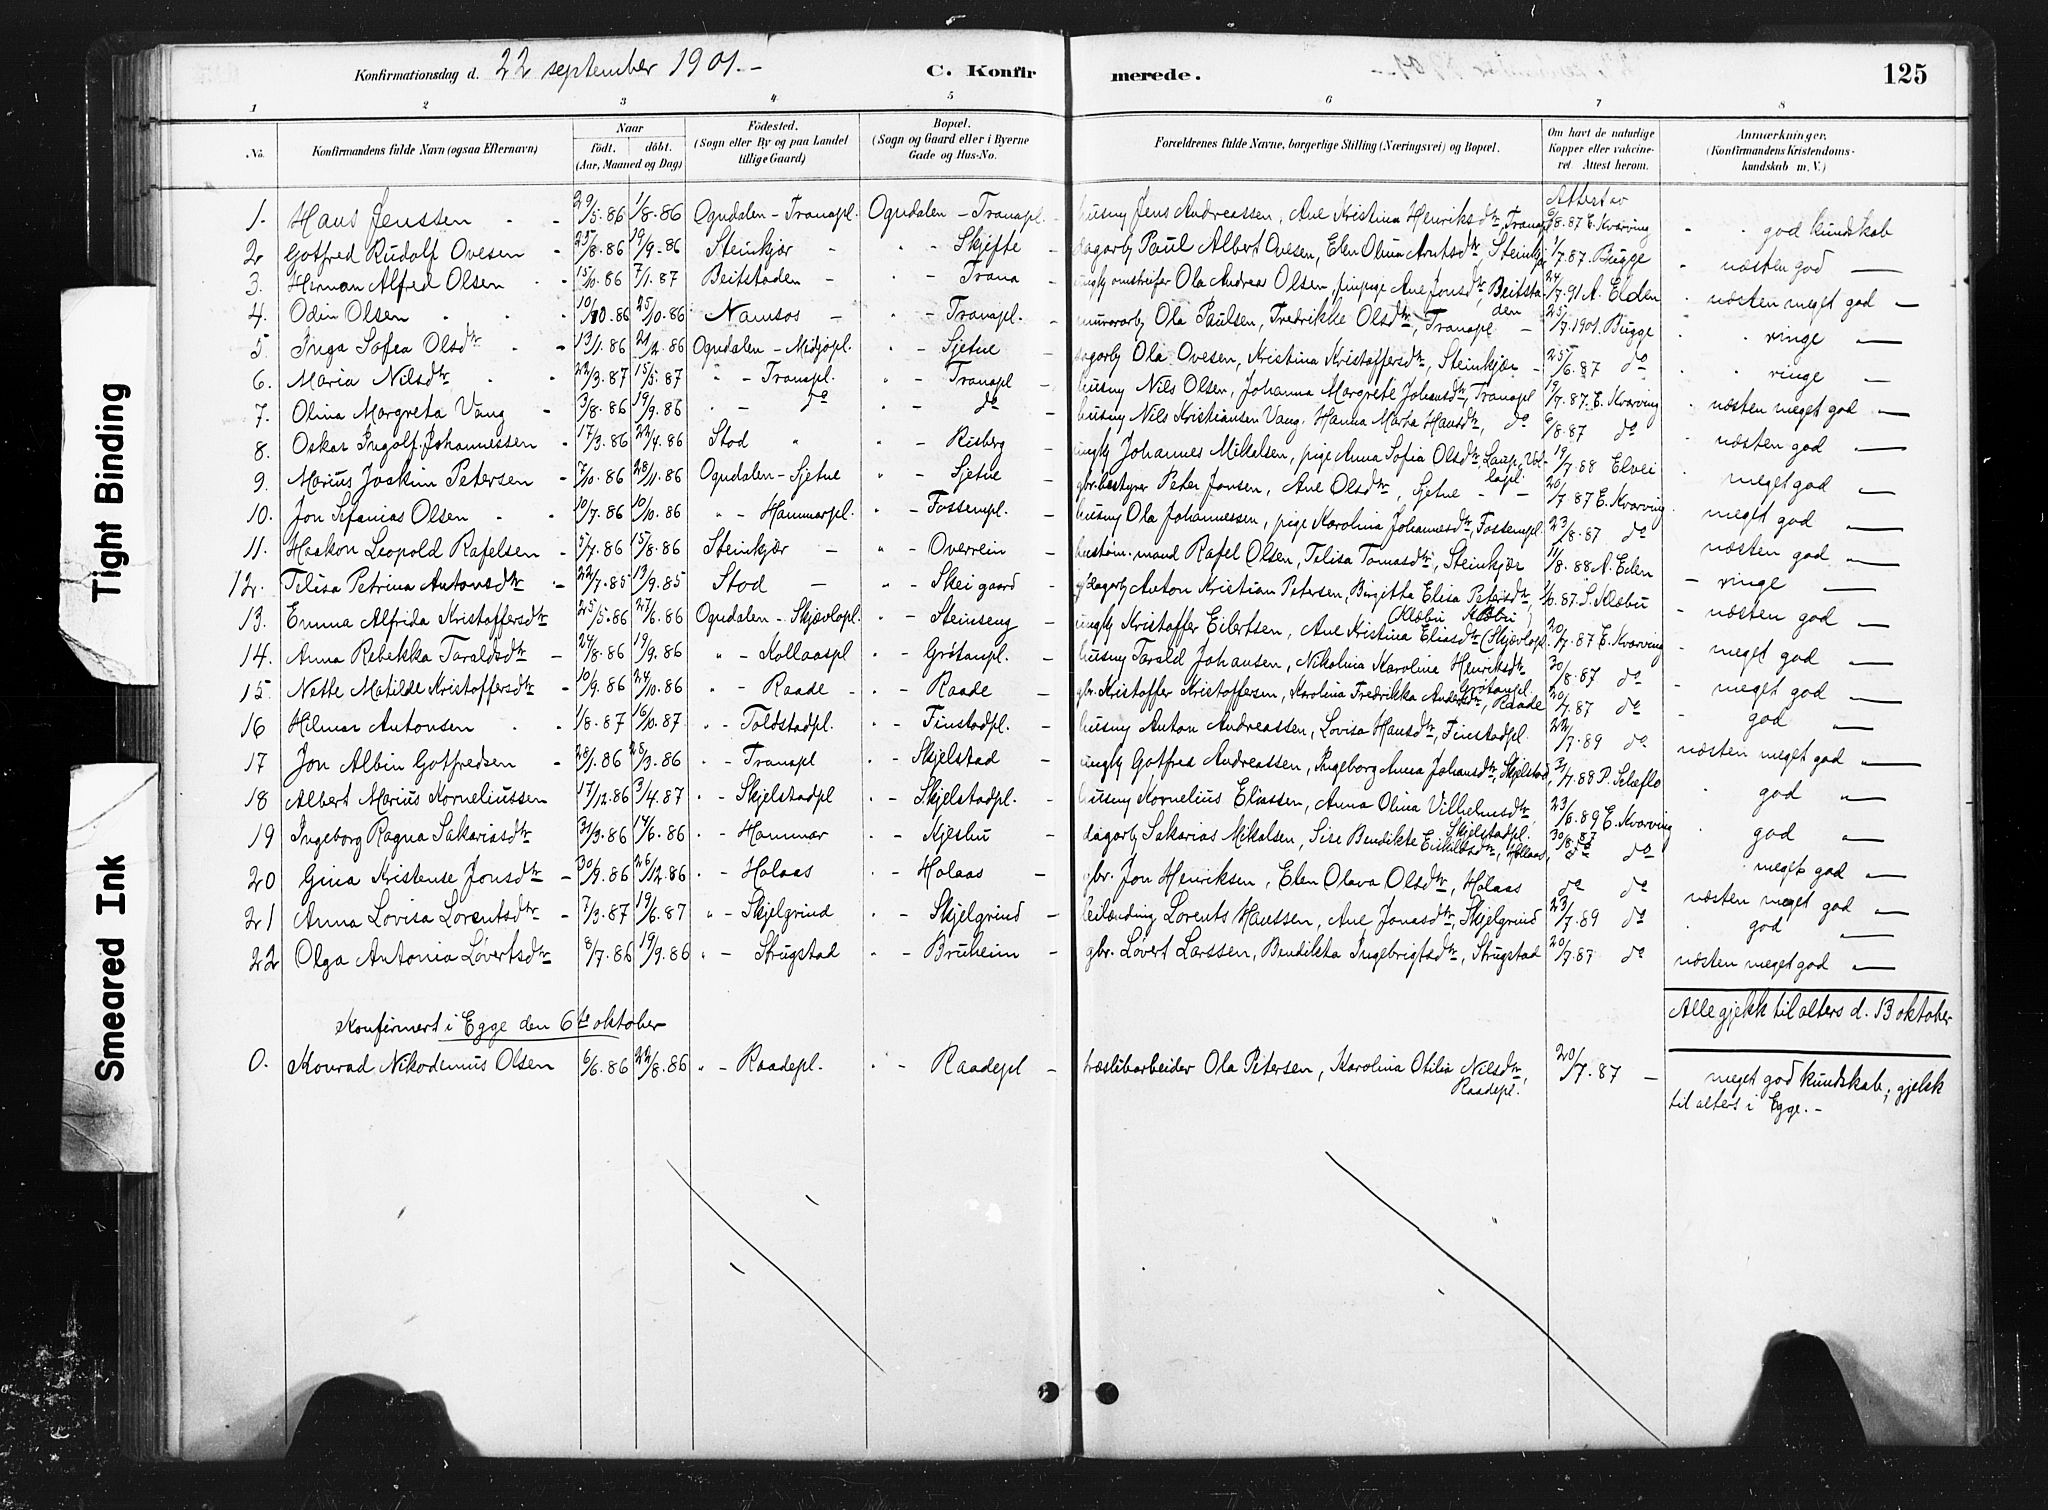 Konfirmationsdag d. 22 september 1901.- C. Konfirmerede. 125
1 2 3 4 5 6 7 8
No. Konfirmandens fulde Navn (ogsaa Efternavn) Naar født. døbt. (Aar, Maaned og Dag) Födested. (Sogn eller By og paa Landet tillige Gaard) Bopæl. (Sogn og Gaard eller i Byerne Gade og Hus-No. Forældrenes fulde Navne, borgerlige Stilling (Næringsvei) og Bopæl. Om havt de naturlige Kopper eller vakcineret. Attest herom. Anmærkninger. (Konfirmandens Kristendomskundskab m. V.)
Attest av
1. Hans Jenssen 29/5.86 1/8.86 Ogndalen - Tranapl. Ogndalen - Tranapl. husmy Jens Andreassen, Ane Kristina Henriksdtr, Tranapl /8.87 E. Kvarving god kundskab
2 Gotfred Rudolf Ovesen 25/8.86 19/9.86 Steinkjær " - Skjefte dagarb Paul Albert Ovesen, Elen Olina Arntsdtr, Steinkjær 1/7.87. Bugge næsten god "
3. Herman Alfred Olsen 15/10.86 7/1.87 Beitstaden " - Trana ungk omstreifer Ola Andreas Olsen, pige Ane Jonsdtr, Beitstaden 24/7.91 A. Elden næsten meget god "
4. Odin Olsen 10/10.86 25/10.86 Namsos " - Tranapl. murarb Ola Paulsen, Fredrikke Olsdtr, Tranapl 25/7.1901. Bugge ringe "
5. Inga Sofea Olsdtr 13/1.86 21/2.86 Ogndalen - Midjopl. " - Sjetne dagarb Ola Ovesen, Kristina Kristoffersdtr, Steinkjær 25/6.87 do ringe "
6. Maria Nilsdtr 22/3.87 15/5.87 " - Tranapl. " - Tranapl husmy Nils Olsen, Johanna Margrete Johansdtr, Tranapl 19/7.87. E. Kvarving næsten meget god "
7. Olina Margreta Vang 3/8.86 19/9.86 " - do " - do husmy Nils Kristiansen Vang, Hanna Marta Hansdtr, do 9/8.87 do næsten god "
8. Oskar Ingolf Johannessen 17/3.86 22/4.86 Stod " " - Risberg ungk Johannes Mikalsen, pige Anna Sofia Olsdtr, 19/7.88 Elvei meget god "
9. Marius Joakim Petersen 7/10.86 28/11.86 Ogndalen - Sjetne " - Sjetne gbr.bestyrer Peter Jonsen, Ane Olsdtr, Sjetne 20/7.87 E. Kvarving meget god "
10. Jon Sefanias Olsen 10/7.86 10/10.86 " - Hammarpl. " - Fossempl. husmy Ola Johannessen, pige Karolina Johannesdtr, Fossempl. 23/8.87 do næsten god "
11. Haakon Leopold Rafelsen 5/7.86 15/8.86 Steinkjær " - Overrein mand Rafel Olsen, Telisa Tomasdtr, Steinkjær 11/8.88 A. Eden ringe "
12. Telisa Petrina Antonsdtr 22/7.85 13/9.85 Stod " - Skei gaard dagarb Anton Kristian Petersen, Birgitta Elisa Petersdtr, Klæbu /6.87. S. Klæbu næsten god "
13. Emma Alfrida Kristoffersdtr 25/5.86 27/6.86 Ogndalen - Skjævlopl. " - Steinseng ungk Kristoffer Eilertsen, Ane Kristina Eliasdtr (Skjævlopl. 20/7.87 E. Kvarving meget god "
14. Anna Rebekka Taraldsdtr 24/8.86 19/9.86 " - Kollaaspl " - Grötanpl. husmy Tarald Johansen, Nikolina Karolina Henriksdtr Grötanpl. 30/8.87 do meget god "
15. Nette Matilde Kristoffersdtr 10/9.86 24/10.86 " - Raade " - Raade gbr. Kristoffer Kristoffersen, Karolina Fredrikka Andersdtr, Raade 20/7.87 do god "
16 Hilmar Antonsen 1/8.87 16/10.87 " - Toldstadpl. " - Finstadpl. husmy Anton Andreassen, Lovisa Hansdtr, Finstadpl. 22/7.89 do næsten meget god "
17 Jon Albin Gotfredsen 28/1.86 28/3.86 " - Tranapl " - Skjelstad ungk Gotfred Andreassen, Ingeborg Anna Johansdtr, Skjelstad, 31/7.88 P. Selæflo god "
18 Albert Marius Korneliussen 17/12.86 3/4.87 " - Skjelstadpl " - Skjelstadpl. husmy Kornelius Eliassen, Anna Olina Vilhelmsdtr, Skjelstadpl. 23/6.89 E. Kvarving god "
19 Ingeborg Ragna Sakariasdtr 31/3.86 14/6.86 " - Hammar " - Kjeshu dagarb Sakarias Mikalsen, Sise Bendikte Eskildsdtr, Hollaas, 30/8.87 do meget god "
20 Gina Kristense Jonsdtr 30/9.86 26/12.86 " - Holaas " - Holaas gbr. Jon Henriksen, Elen Olava Olsdtr, Holaas do do næsten meget god "
21 Anna Lovisa Lorentsdtr 7/3.87 19/6.87 " - Skjelgrind " - Skjelgrind leilænding Lorents Hanssen, Ane Jonasdtr, Skjelgrind 23/7.89 do god "
22 Olga Antonia Løvertsdtr 8/7.86 19/9.86 " - Strugstad " - Bruheim gbr. Løvert Larssen, Bendikta Ingebrigtsdtr, Strugstad 20/7.87 do næsten meget god "
Alle gjekk til alters d. 13 oktober
Konfirmert i Egge den 6te oktober
0. Konrad Nikodemus Olsen 6/6.86 22/8.86 " - Raadepl. " - Raadepl træslibarbeider Ola Petersen, Karolina Otilia Nilsdtr, Raadepl. 20/7.87 meget god kundskab; gjekk
til alters i Egge.-
Tight Binding
Smeared Ink